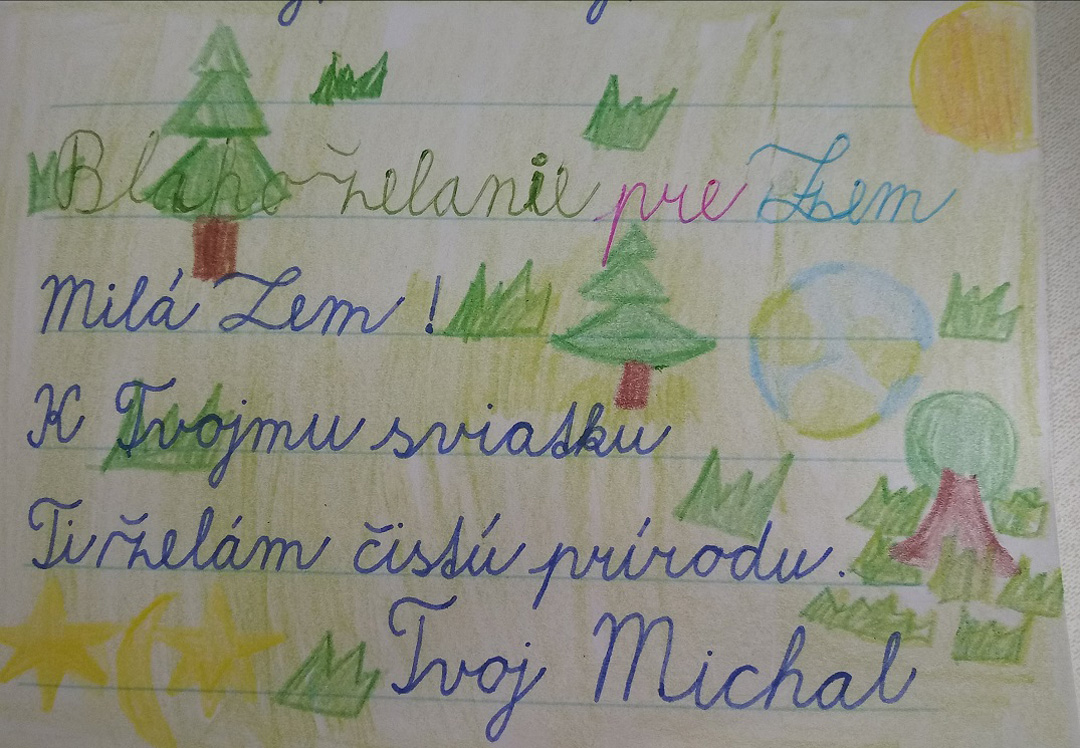 Blahoželanie pre Zem
Milá Zem!
K Tvojmu sviatku
Ti želám čistú prírodu.
Tvoj Michal